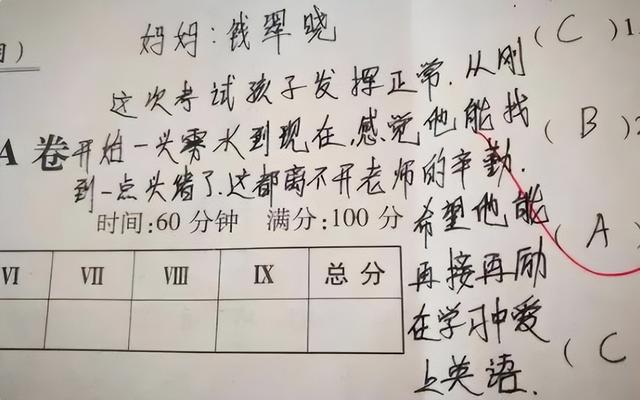 妈妈:钱翠晓
这次考试孩子发挥正常.从刚
开始一头雾水到现在,感觉他能找
到一点头绪了.这都离不开老师的辛勤.
希望他能
再接再励
在学习中爱
上英语.
A 卷
时间:60 分钟 满分:100 分
VI VII VIII IX 总 分
( C ) 1
( B ) 2
( A )
( C